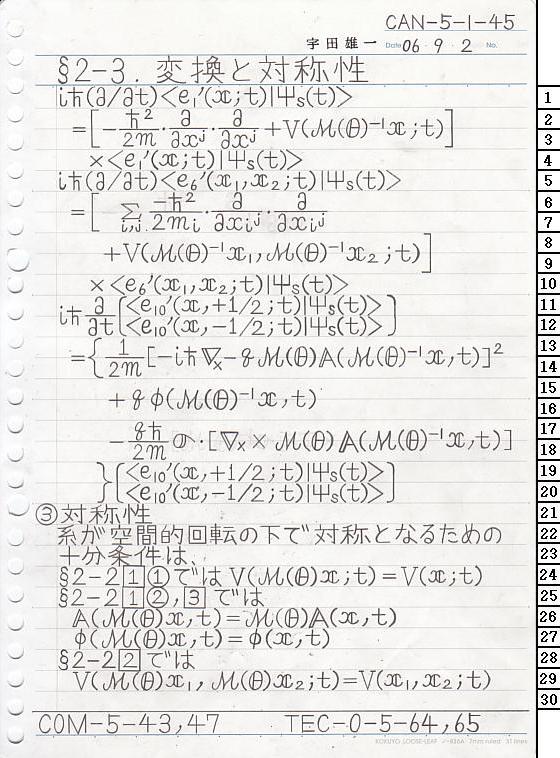 CAN-5-1-45
宇田雄一 Date 06・9・2 No.
§2-3. 変換と対称性
iħ(∂/∂t)<e₁'(x;t)|Ψs(t)>
=[-ħ²/2m・∂/∂xʲ・∂/∂xʲ+V(M(θ)⁻¹x;t)]
×<e₁'(x;t)|Ψs(t)>
iħ(∂/∂t)<e₆'(x₁,x₂;t)|Ψs(t)>
=[Σi,j -ħ²/2mi・∂/∂xiʲ・∂/∂xiʲ
+V(M(θ)⁻¹x₁,M(θ)⁻¹x₂;t)]
×<e₆'(x₁,x₂;t)|Ψs(t)>
iħ ∂/∂t [<e₁₀'(x,+1/2;t)|Ψs(t)>
<e₁₀'(x,-1/2;t)|Ψs(t)>]
={1/2m[-iħ∇x-qM(θ)A(M(θ)⁻¹x,t)]²
+qφ(M(θ)⁻¹x,t)
-qħ/2m σ・[∇x×M(θ)A(M(θ)⁻¹x,t)]
}[<e₁₀'(x,+1/2;t)|Ψs(t)>
<e₁₀'(x,-1/2;t)|Ψs(t)>]
③対称性
系が空間的回転の下で対称となるための
十分条件は、
§2-2 1 ①では V(M(θ)x;t)=V(x;t)
§2-2 1 ②, 3 では
A(M(θ)x,t)=M(θ)A(x,t)
φ(M(θ)x,t)=φ(x,t)
§2-2 2 では
V(M(θ)x₁,M(θ)x₂;t)=V(x₁,x₂;t)
COM-5-43,47 TEC-0-5-64,65
KOKUYO LOOSE-LEAF ノ-836A 7mm ruled 31 lines
1
2
3
4
5
6
7
8
9
10
11
12
13
14
15
16
17
18
19
20
21
22
23
24
25
26
27
28
29
30